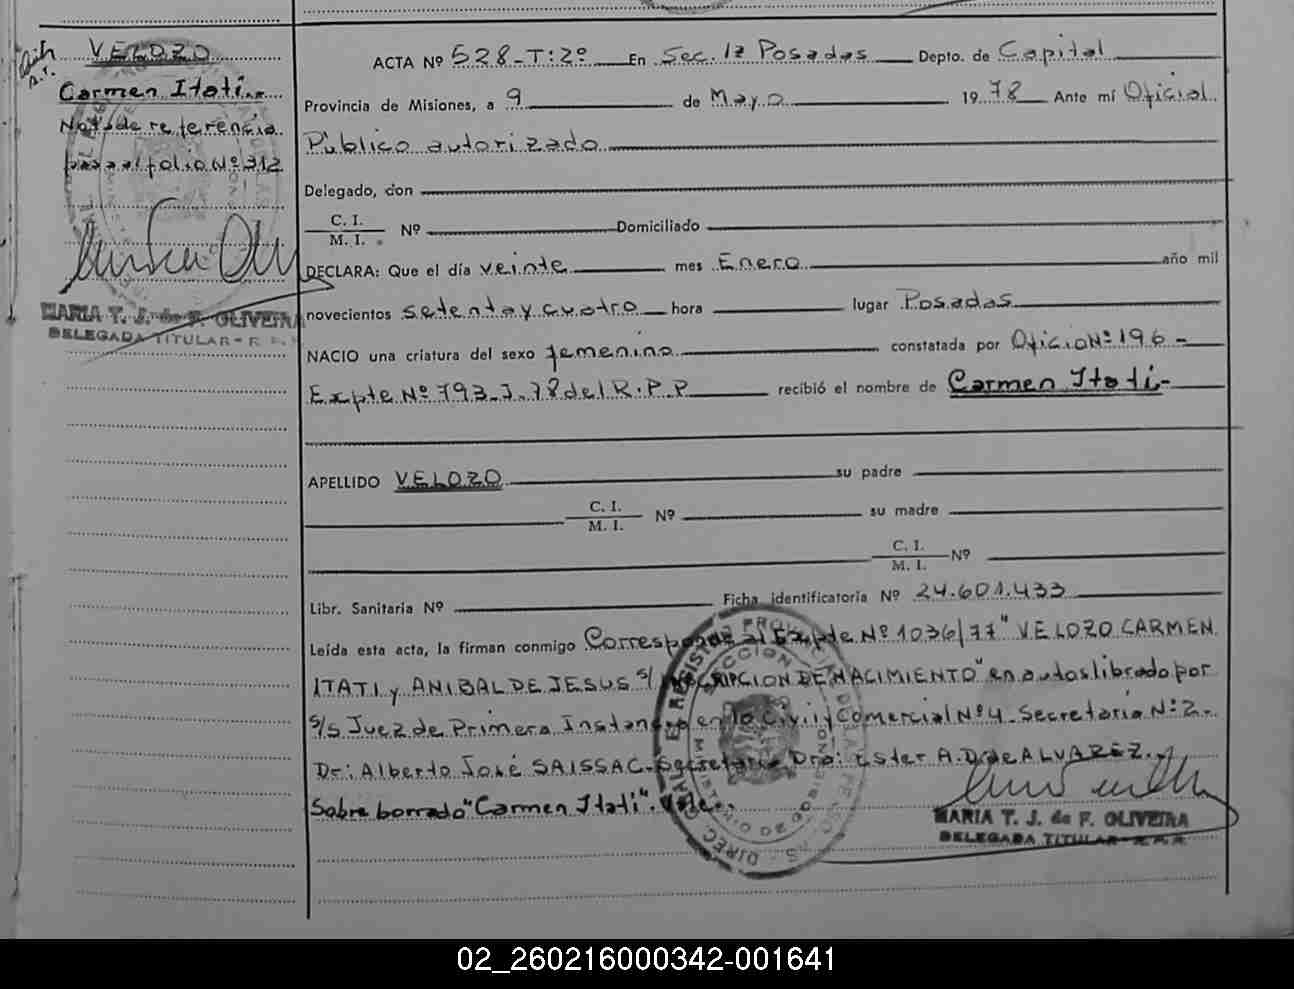 VELOZO
Carmen Itatí.-
Nota de referencia
pasa al folio Nº 312
MARIA T. J. de F. OLIVEIRA
DELEGADA TITULAR - R. P. P.
ACTA Nº 528-T:2º En Sec. 1ª Posadas Depto. de Capital
Provincia de Misiones, a 9 de Mayo 1978 Ante mí Oficial
Público autorizado
Delegado, don
C. I.
M. I. Nº Domiciliado
DECLARA: Que el día veinte mes Enero año mil
novecientos setenta y cuatro hora lugar Posadas
NACIO una criatura del sexo femenino constatada por Oficio Nº 196-
Expte Nº 793-J-78 del R.P.P recibió el nombre de Carmen Itatí.-
APELLIDO VELOZO su padre
C. I.
M. I. Nº su madre
C. I.
M. I. Nº
Libr. Sanitaria Nº Ficha identificatoria Nº 24.601.433
Leída esta acta, la firman conmigo Corresponde al Expte Nº 1036/77 "VELOZO CARMEN
ITATI y ANIBAL DE JESUS s/INSCRIPCION DE NACIMIENTO" en autos librado por
S/S Juez de Primera Instancia en lo Civil y Comercial Nº 4-Secretaria Nº 2-
Dr: Alberto José SAISSAC-Secretaria Dra: Ester A. D. de ALVAREZ.-
Sobre borrado "Carmen Itatí". Vale.-
MARIA T. J. de F. OLIVEIRA
DELEGADA TITULAR - R. P. P.
02_260216000342-001641